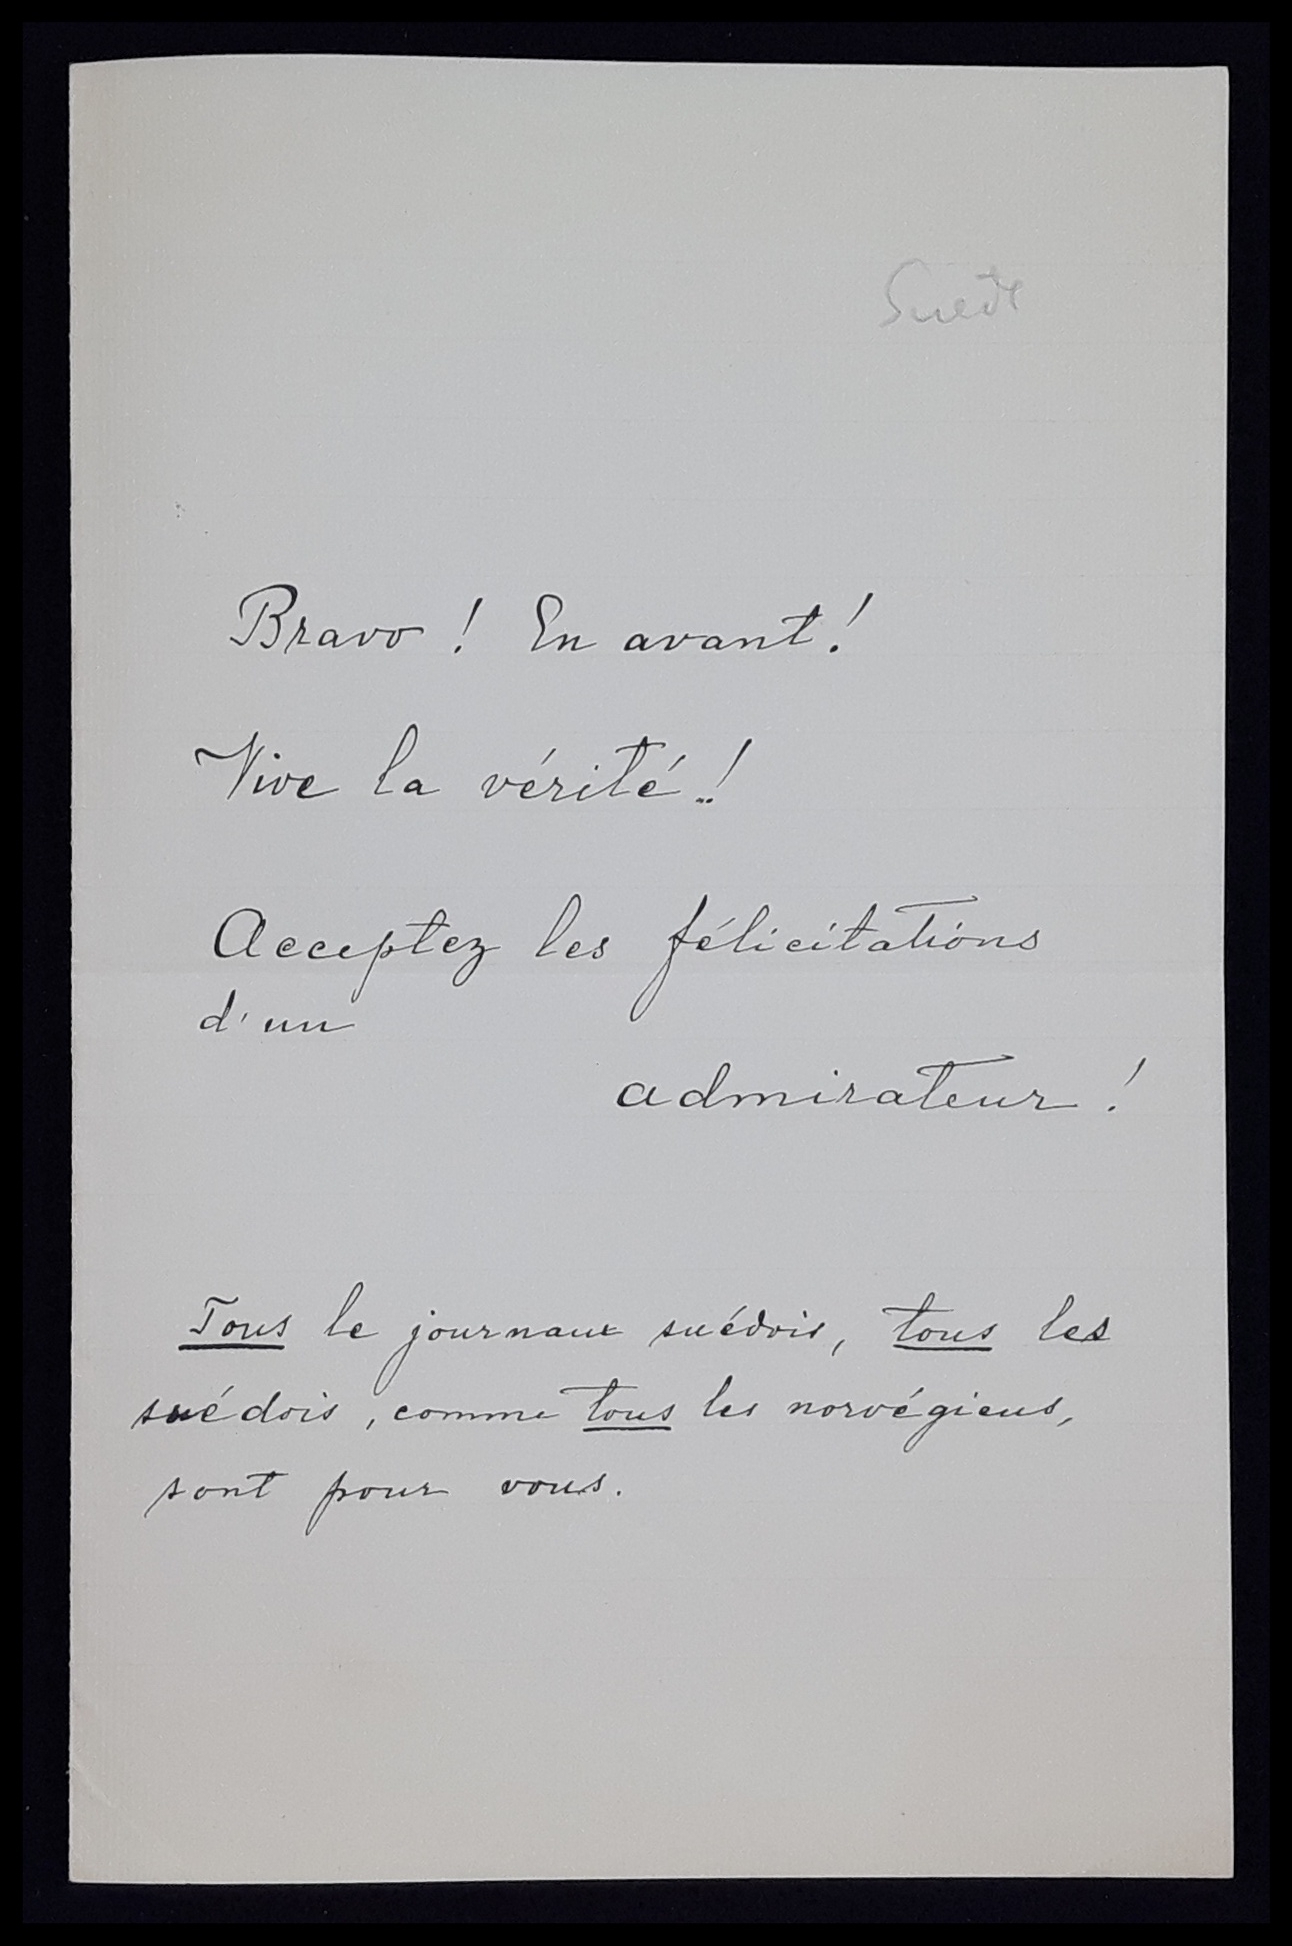 Suède
Bravo ! En avant !
Vive la vérité !
Acceptez les félicitations
d'un
admirateur !
Tous le journaux suédois, tous les
suédois, comme tous les norvégiens,
sont pour vous.